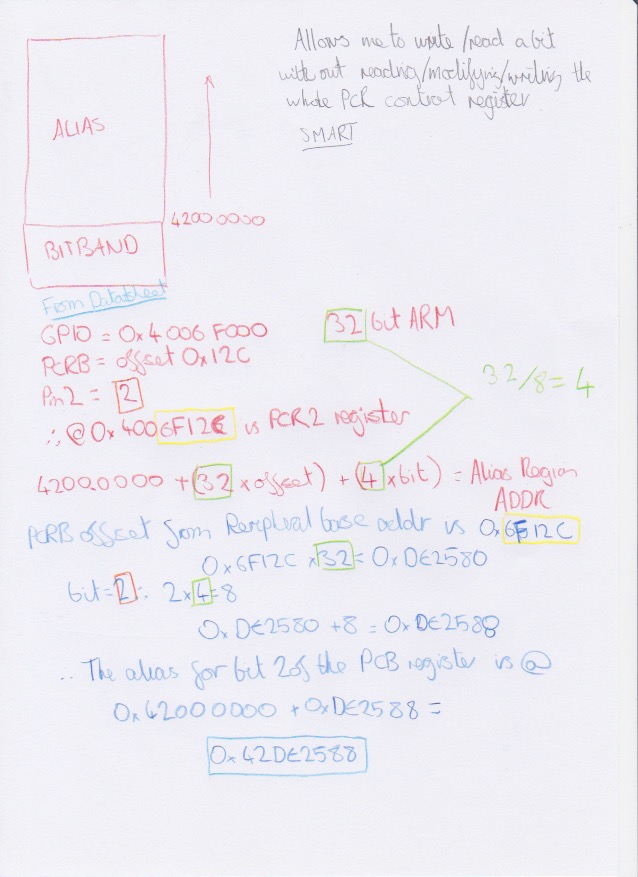 Allows me to write/read a bit
without reading/modifying/writing the
whole PCR control register
SMART
ALIAS
42000000
BITBAND
From Datasheet
GPIO = 0x4006F000
PCRB = offset 0x12C
Pin2 = 2
32 bit ARM
32/8=4
∴ @ 0x4006F12C is PCR2 register
42000000 + (32 x offset) + (4 x bit) = Alias Region
ADDR
PCRB offset from Peripheral base addr is 0x6F12C
0x6F12C x 32 = 0xDE2580
bit=2 ∴ 2x4=8
0xDE2580 + 8 = 0xDE2588
∴ The alias for bit 2 of the PCB register is @
0x42000000 + 0xDE2588 =
0x42DE2588